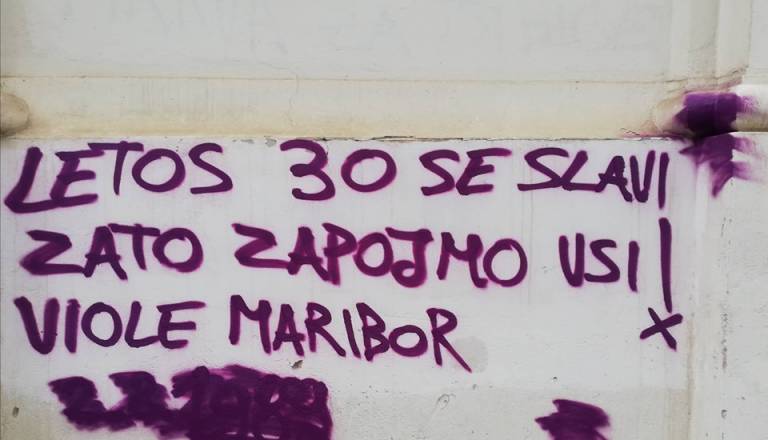 LETOS 30 SE SLAVI
ZATO ZAPOJMO VSI!
VIOLE MARIBOR